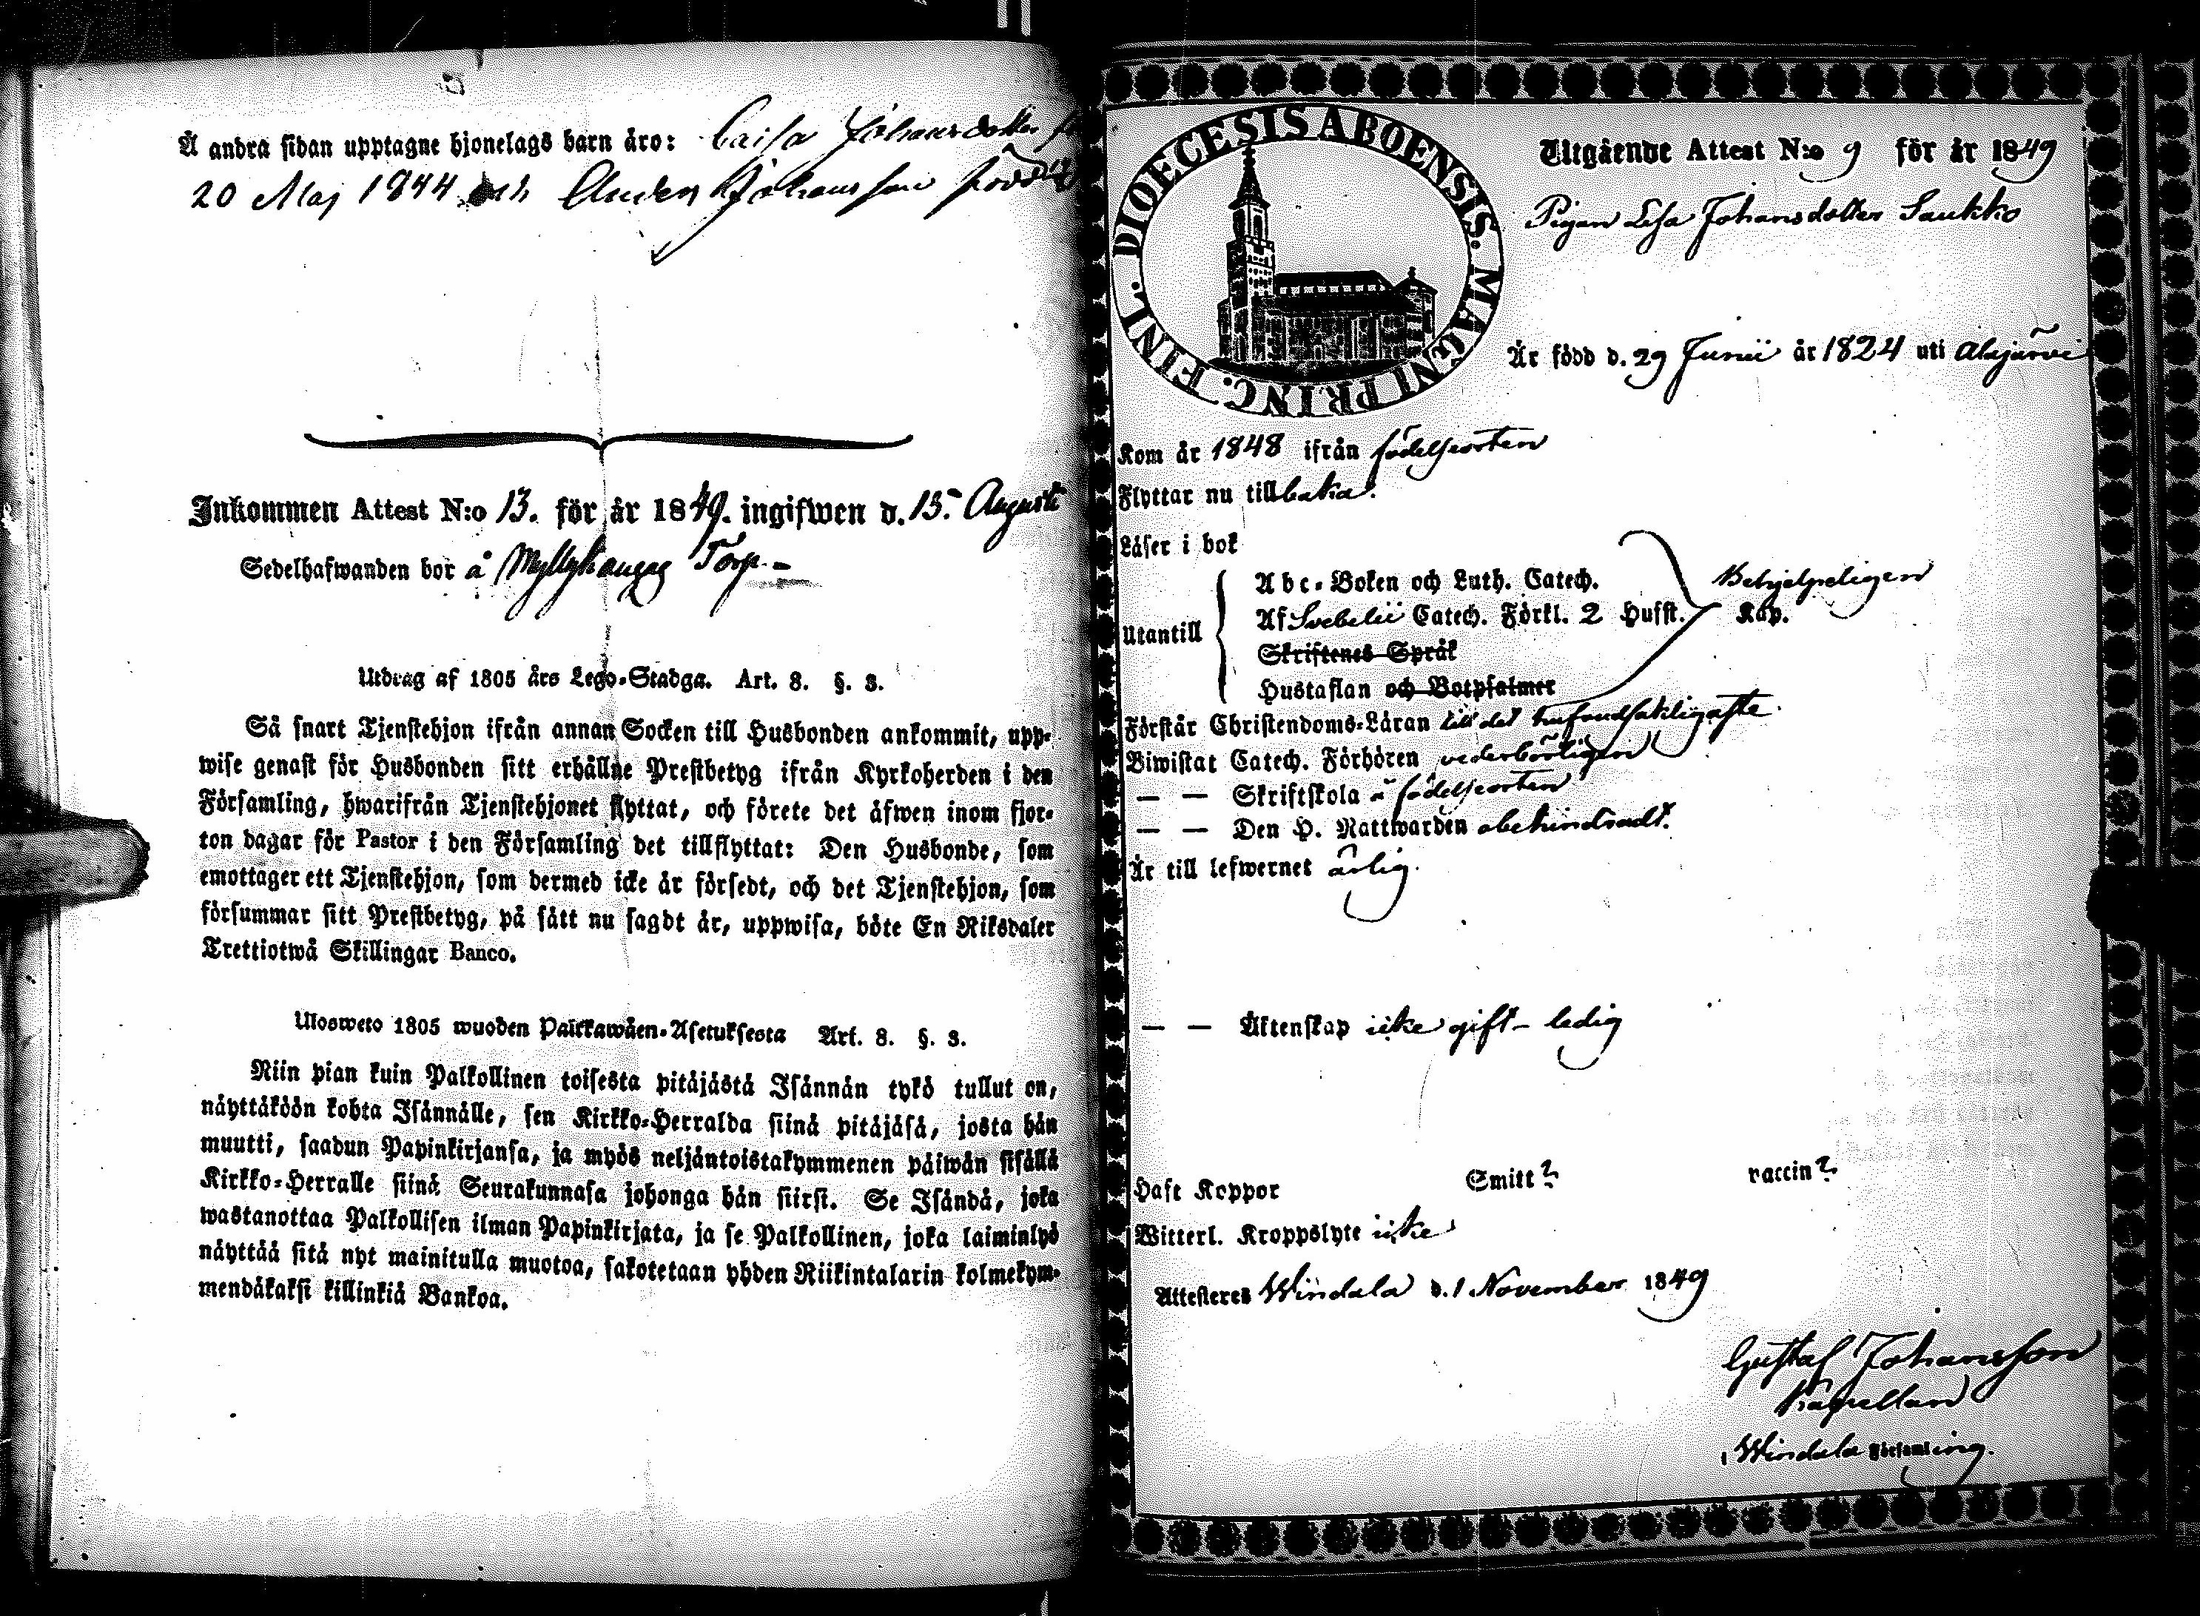 Å andra sidan upptagne hjonelags barn äro: Caisa Johansdotter
20 Maj 1844 och Anders Johansson född
Inkommen Attest N:o 13. för år 1849. ingifwen d. 15. Augusti
Sedelhafwanden bor å Myllykangas Torp. –
Utdrag af 1805 års Lego-Stadga. Art. 8. §. 3.
Så snart Tjenstehjon ifrån annan Socken till Husbonden ankommit, upp-
wise genast för Husbonden sitt erhållne Prestbetyg ifrån Kyrkoherden i den
Församling, hwarifrån Tjenstehjonet flyttat, och förete det äfwen inom fjor-
ton dagar för Pastor i den Församling det tillflyttat: Den Husbonde, som
emottager ett Tjenstehjon, som dermed icke är försedt, och det Tjenstehjon, som
försummar sitt Prestbetyg, på sätt nu sagdt är, uppwisa, böte En Riksdaler
Trettiotwå Skillingar Banco.
Ulosweto 1805 wuoden Palckawäen-Asetuksesta Art. 8. §. 3.
Niin pian kuin Palkollinen toisesta pitäjästä Isännän tykö tullut on,
näyttäköön kohta Isännälle, sen Kirkko-Herralda siinä pitäjäsä, josta hän
muutti, saadun Papinkirjansa, ja myös neljäntoistakymmenen päiwän sisällä
Kirkko-Herralle siinä Seurakunnasa johonga hän siirsi. Se Isändä, joka
wastanottaa Palkollisen ilman Papinkirjata, ja se Palkollinen, joka laiminlyö
näyttää sitä nyt mainitulla muotoa, sakotetaan yhden Riikintalarin kolmekym-
mendäkaksi killinkiä Bankoa.
DIOECESIS ABOENSIS. MAGNI PRINC. FINL.
Utgående Attest N:o 9 för år 1849
Pigan Lisa Johansdotter Saukko
Är född d. 29 Junii år 1824 uti Alajärvi
Kom år 1848 ifrån födelseorten
Flyttar nu tillbaka.
Läser i bok
Utantill
Abc-Boken och Luth. Catech.
Behjelpeligen
Af Svebelii Catech. Förkl. 2 Hufst. Kap.
Skriftenes Språk
Hustaflan och Botpsalmer
Förstår Christendoms-Läran till det hufvudsakligaste.
Biwistat Catech. Förhören vederbörligen
— — Skriftskola å födelseorten
— — Den H. Nattwarden obehindradt.
Är till lefwernet ärlig.
— — Äktenskap icke gift – ledig
Haft Koppor Smitt? vaccin?
Witterl. Kroppslyte icke
Attesteres Windala d. 1 November 1849
Gustaf Johansson
Kapellan
i Windala Församling.